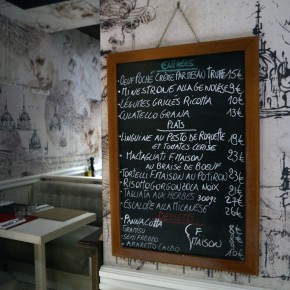 ENTRÉES
• OEUF POCHÉ CRÈME PARMESAN TRUFFE 15€
• MINESTRONE ALLA GENOVESE 9€
• LÉGUMES GRILLÉS RICOTTA 10€
• CULATELLO GRANA 13€
PLATS
• LINGUINE AU PESTO DE ROQUETTE 19€
ET TOMATES CERISE
• MALTAGLIATI F.MAISON 23€
AU BRAISÉ DE BOEUF
• TORTELLI F.MAISON AU POTIRON 23€
• RISOTTO GORGONZOLA NOIX 21€
• TAGLIATA AUX HERBES 300gr 27€
• ESCALOPE ALLA MILANESE 26€
DESSERTS
• PANNA COTTA 8€
• TIRAMISU
• SEMIFREDDO
• AMARETTO CACAO 10€
F
MAISON